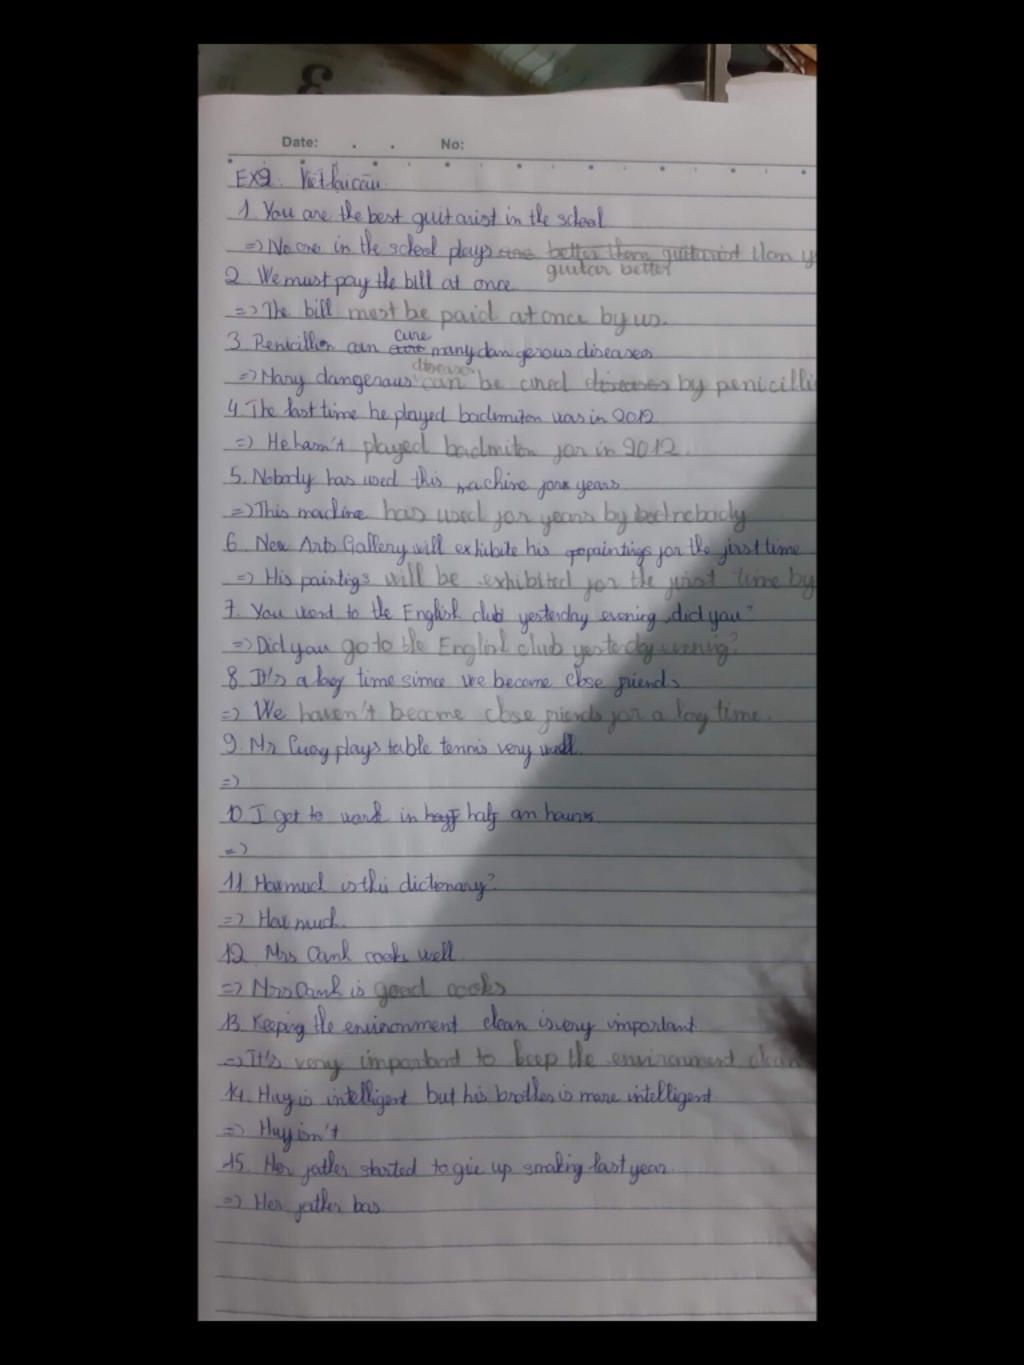 3
Date: . . No:
EX9: Viết lại câu.
1. You are the best guitarist in the school
=> No one in the school plays are better than guitarist than y
guitar better
2. We must pay the bill at once.
=> The bill must be paid at once by us.
cure
3. Penicillin can many dangerous diseases
diseases
=> Many dangerous can be cured diseases by penicilli
4. The last time he played badmiton was in 2012.
=> He hasn't played badmiton for in 2012.
5. Nobody has used this machine for years
=> This machine has used for years by nobody
6. New Arts Gallery will exhibite his paintings for the first time
=> His paintigs will be exhibited for the first time by
7. You went to the English club yesterday evening, did you?
=> Did you go to the English club yesterday evenig?
8. It's a log time since we become close friends
=> We haven't become close friends for a log time.
9. Mr Cuog plays table tennis very well.
=>
10. I get to work in half an hours.
=>
11. How much is this dictionary?
=> How much.
12. Mrs Oanh cooks well
=> Mrs Oanh is good cooks
13. Keepig the environment clean is very important
=> It's very important to keep the environment clean
14. Huy is intelligent but his brother is more intelligent
=> Huy isn't
15. Her father started to give up smokig last year.
=> Her father has